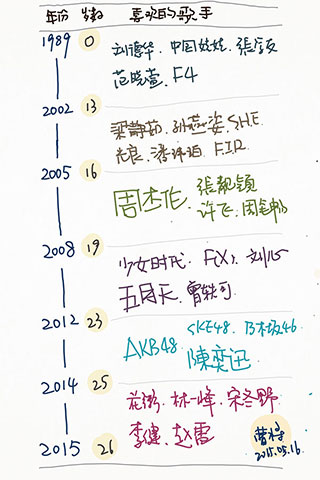 年份 岁数 喜欢的歌手
1989 0
刘德华、中国娃娃、張
范晓萱、F4
2002 13
梁静茹、孙燕姿、S.H.E
光良、潘玮柏、F.I.R
2005 16
周杰伦、張靓颖
许飞、周笔畅
2008 19
少女时代、F(X)、刘
五月天、曾轶可
2012 23
SKE48、乃木坂46
AKB48 陳奕迅
2014 25
花粥、林一峰、宋冬野
李健、赵雷
2015 26
2015.05.16